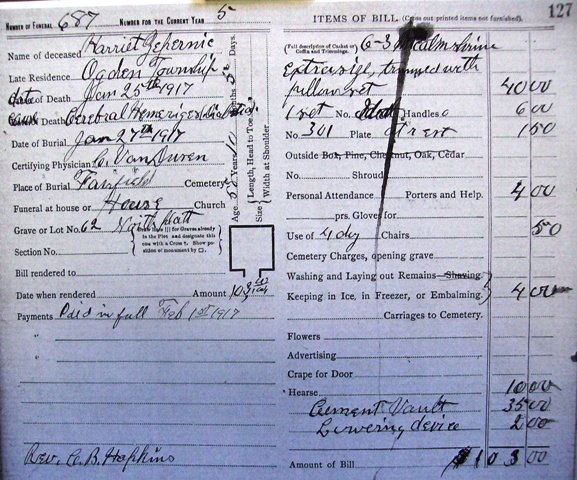 127
NUMBER OF FUNERAL 687 NUMBER FOR THE CURRENT YEAR 5
Name of deceased Harriet
Late Residence Ogden Township
date of Death Jan 25th 1917
Death Cerebral
Date of Burial Jan 27th 1917
Certifying Physician C. VanDuren
Place of Burial Fairfield Cemetery
Funeral at house or House Church
Grave or Lot No. 62 North
Section No.
Bill rendered to
Date when rendered Amount 103
Payments Paid in full Feb 1st 1917
"
"
Rev. C. B. Hopkins
Age Years Months Days.
Size { Length, Head to Toe
Width at Shoulder
ITEMS OF BILL (Cross out printed items not furnished).
(Full description of Casket or Coffin and Trimmings. 6-3
extra size, trimmed with
pillow set 40 00
1 set No. Handles 6 00
No. 301 Plate At rest 1 50
Outside Box, Pine, Chestnut, Oak, Cedar
No. Shroud
Personal Attendance Porters and Help. 4 00
prs. Gloves for
Use of 4 dz Chairs 50
Cemetery Charges, opening grave
Washing and Laying out Remains Shaving
Keeping in Ice, in Freezer, or Embalming. 4 00
Carriages to Cemetery.
Flowers
Advertising
Crape for Door
Hearse 10 00
Cement Vault 35 00
Lowering device 2 00
Amount of Bill $103 00